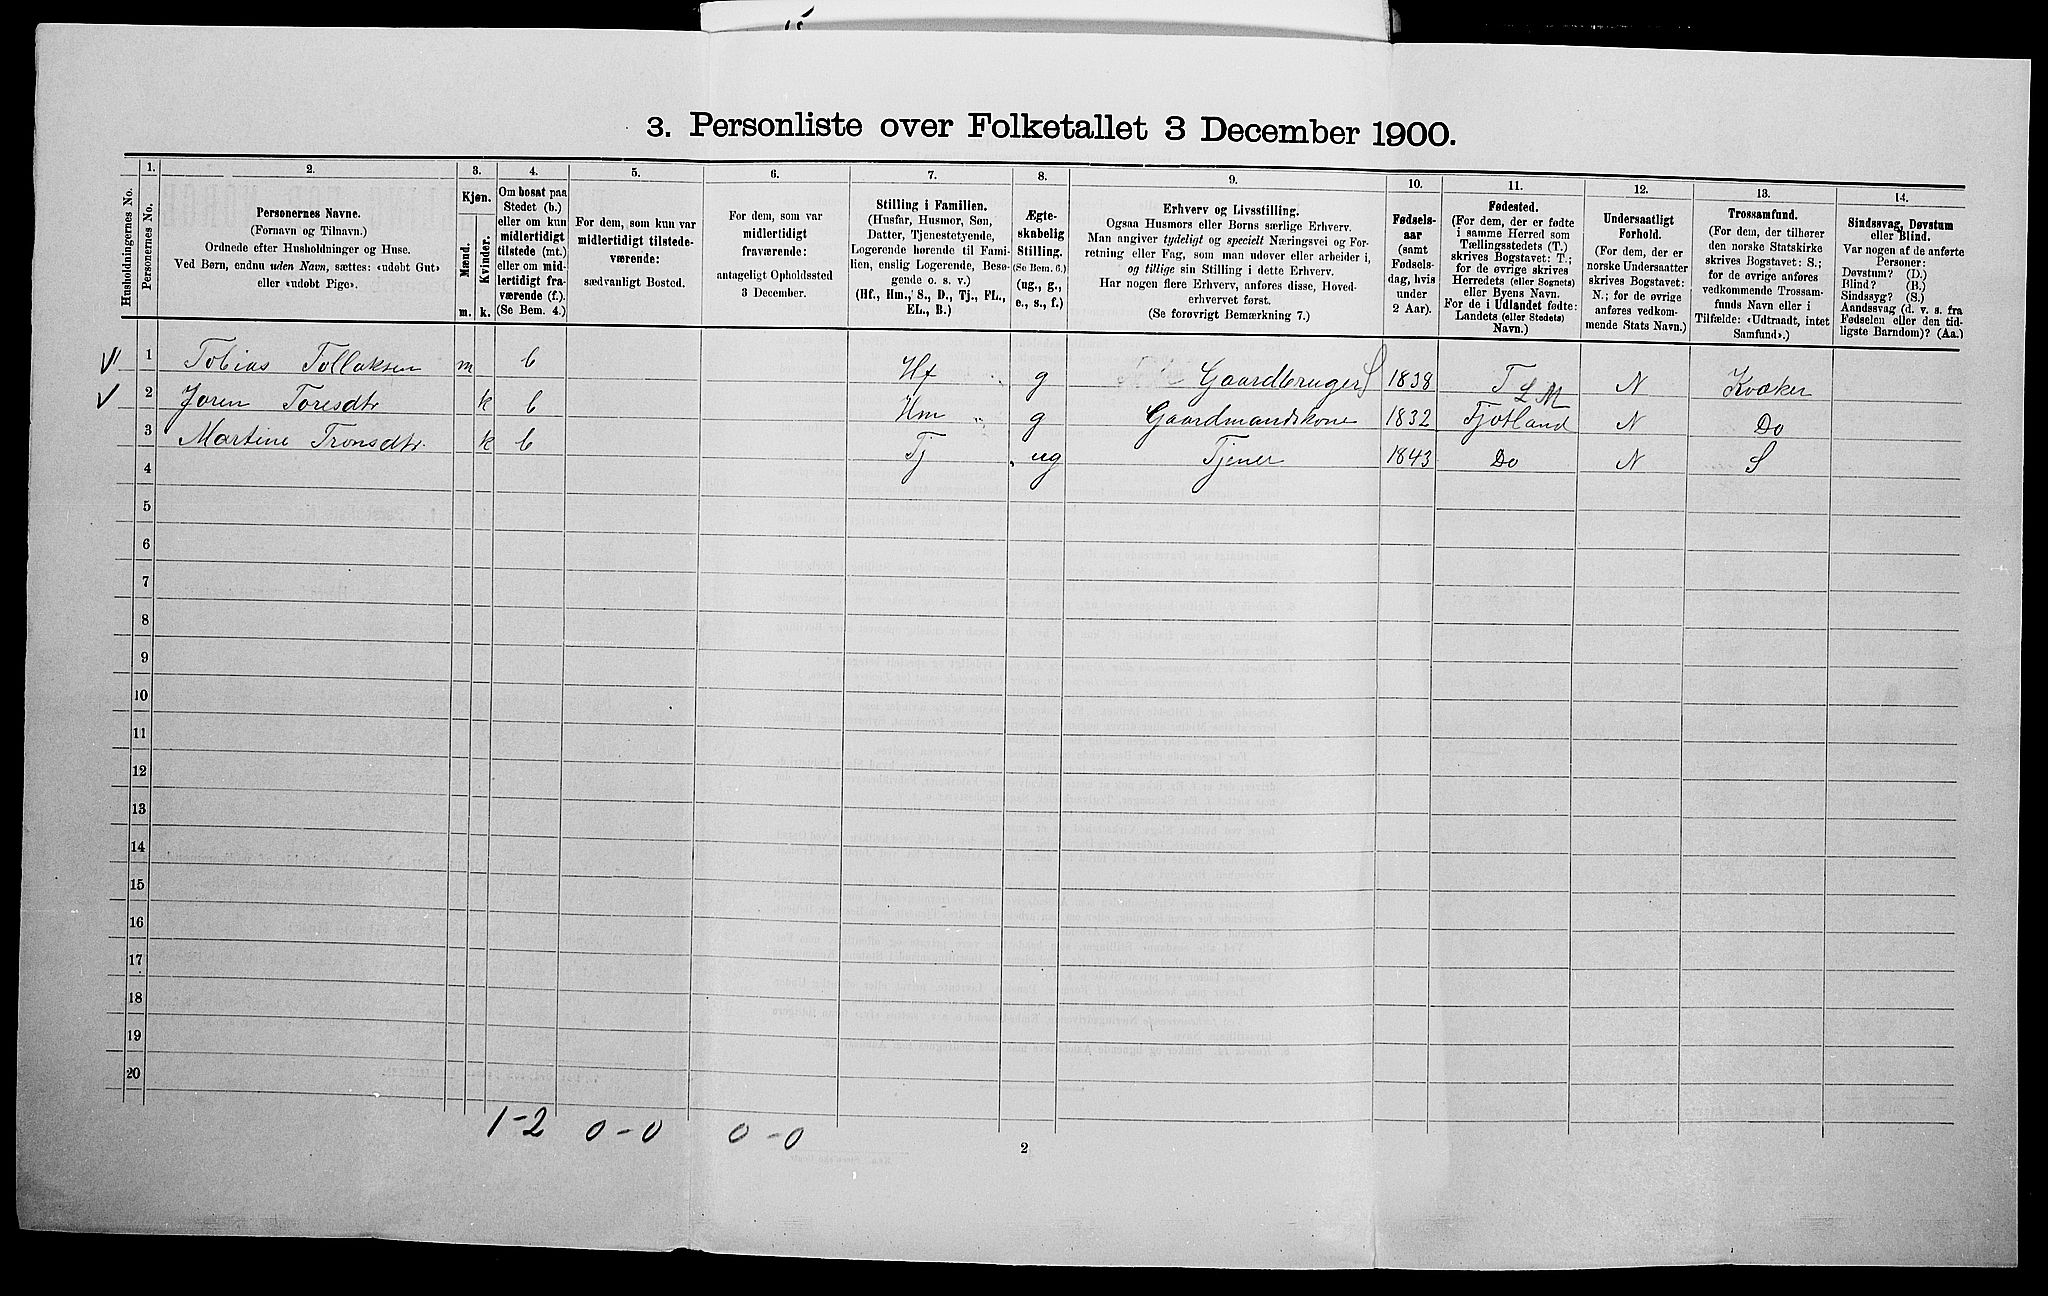 3. Personliste over Folketallet 3 December 1900.
Husholdningernes No.
1.
Personernes No.
2.
Personernes Navne.
(Fornavn og Tilnavn.)
Ordnede efter Husholdninger og Huse.
Ved Børn, endnu uden Navn, sættes: «udøbt Gut»
eller «udøbt Pige».
3.
Kjøn.
Mænd.
Kvinder.
m. k.
4.
Om bosat paa
Stedet (b.)
eller om kun
midlertidigt
tilstede (mt.)
eller om mid-
lertidigt fra-
værende (f.).
(Se Bem. 4.)
5.
For dem, som kun var
midlertidigt tilstede-
værende:
sædvanligt Bosted.
6.
For dem, som var
midlertidigt
fraværende:
antageligt Opholdssted
3 December.
7.
Stilling i Familien.
(Husfar, Husmor, Søn,
Datter, Tjenestetyende,
Logerende hørende til Fami-
lien, enslig Logerende, Besø-
gende o. s. v.)
(Hf., Hm., S., D., Tj., FL.,
EL., B.)
8.
Ægte-
skabelig
Stilling.
(Se Bem. 6.)
(ug., g.,
e., s., f.)
9.
Erhverv og Livsstilling.
Ogsaa Husmors eller Børns særlige Erhverv.
Man angiver tydeligt og specielt Næringsvei og For-
retning eller Fag, som man udøver eller arbeider i,
og tillige sin Stilling i dette Erhverv.
Har nogen flere Erhverv, anføres disse, Hoved-
erhvervet først.
(Se forøvrigt Bemærkning 7.)
10.
Fødsels-
aar
(samt
Fødsels-
dag, hvis
under
2 Aar).
11.
Fødested.
(For dem, der er fødte
i samme Herred som
Tællingsstedets (T.)
skrives Bogstavet: T.;
for de øvrige skrives
Herredets (eller Sognets)
eller Byens Navn.
For de i Udlandet fødte:
Landets (eller Stedets)
Navn.)
12.
Undersaatligt
Forhold.
(For dem, der er
norske Undersaatter
skrives Bogstavet:
N.; for de øvrige
anføres vedkom-
mende Stats Navn.)
13.
Trossamfund.
(For dem, der tilhører
den norske Statskirke
skrives Bogstavet: S.;
for de øvrige anføres
vedkommende Trossam-
funds Navn eller i
Tilfælde: «Udtraadt, intet
Samfund».)
14.
Sindssvag, Døvstum
eller Blind.
Var nogen af de anførte
Personer:
Døvstum? (D.)
Blind? (B.)
Sindssyg? (S.)
Aandssvag (d. v. s. fra
Fødselen eller den tid-
ligste Barndom)? (Aa.)
1 Tobias Tollaksen m b Hf g Gaardbruger S 1838 T L M N Kvæker
2 Joren Toresdtr k b Hm g Gaardmandskone 1832 Fjotland N Do
3 Martine Tronsdtr. k b Tj ug Tjener 1843 Do N S
4
5
6
7
8
9
10
11
12
13
14
15
16
17
18
19
20
1-2 0-0 0-0
2